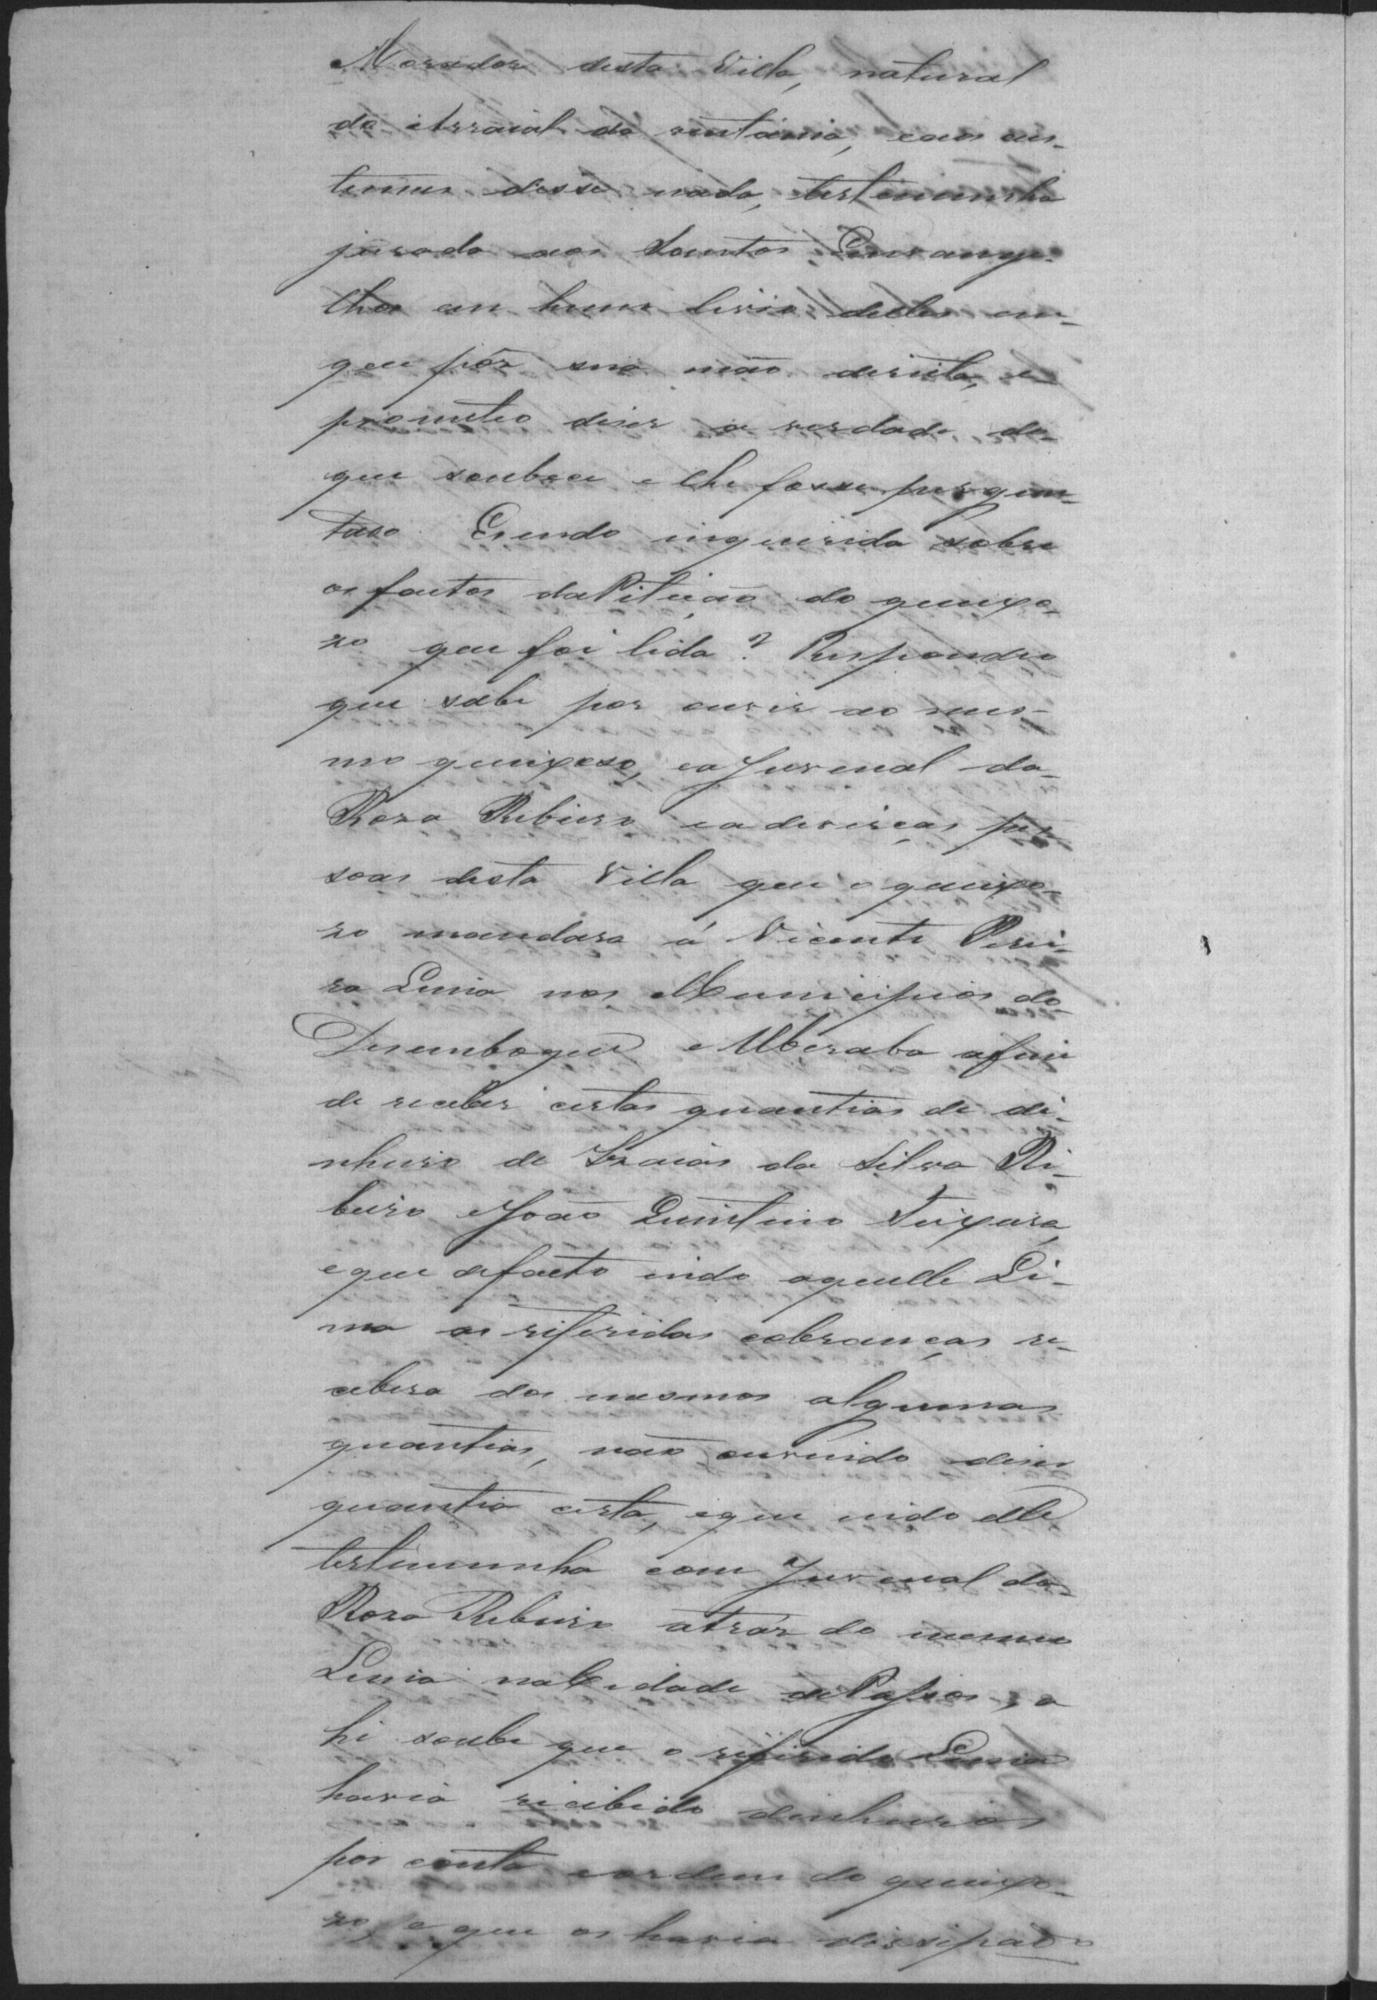 Morador desta Villa, natural
do Arraial da ventania, cons cus-
tumes desse nada, testemunha
jurada aos Santos Envange-
lhos em hum livro delles em
que pôz sua mão direita, e
prometeo diser a verdade do
que soubece e lhe fosse pergun-
tado. Esendo inquirida sobre
os factos daPitição do queixo-
zo que foi lida? Respondeo
que sabe por ouvir ao mes-
mo queixoso, ea Juvenal da
Roza Ribiero ea deverças pes
soas desta Villa que o queixo-
zo mandara á Vicente Perei-
ra Lima nos Municipios do
Desemboque e Uberaba afim
de receber certas quantias de di-
nheiro de Izaias da Silva Ri-
beiro eJoão Quintino Teixeira,
eque defacto indo aquelle Li-
ma as referidas cobranças re-
cebera dos mesmos algumas
quantias, não ouvindo diser
quantia certa, eque indo elle
testemunha com Juvenal da
Roza Ribeiro atráz do mesmo
Lima naCidade dePassos, a
hi soube que o referido Lima
havia recibido dinheiros
por conta eordem do queixo-
zo, e que os havia dissipado